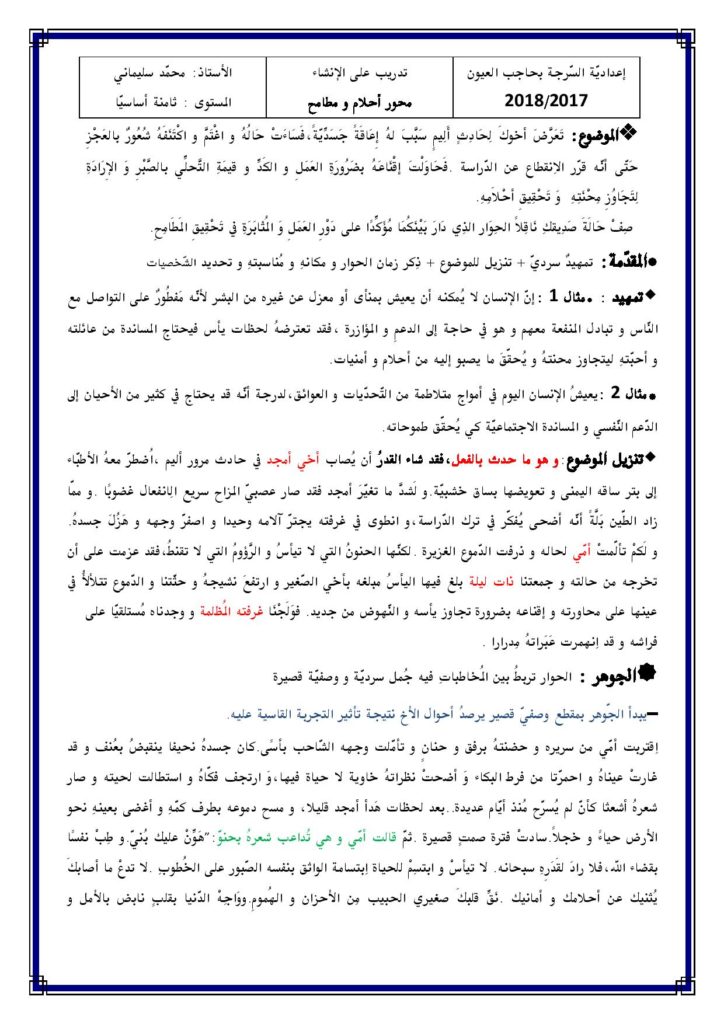 إعداديّة السّرجة بحاجب العيون
2018/2017
تدريب على الإنشاء
محور أحلام و مطامح
الأستاذ: محمّد سليماني
المستوى : ثامنة أساسيّا
❖الموضوع: تَعَرَّضَ أخوكَ لِحَادِثٍ أَلِيمٍ سَبَّبَ لهُ إِعَاقَةً جَسَدِّيَّةً،فَسَاءَتْ حَالُهُ و اغْتَمَّ و اكْتَنَفَهُ شُعُورٌ بالعَجْزِ
حَتّى أنّه قرّر الانقطاع عن الدّراسة .فَحَاوَلْتَ إقْنَاعَهُ بضَرُورَةِ العَمَلِ و الكَدِّ و قيمَةِ التَّحلِّي بالصَّبْرِ وَ الإِرَادَةِ
لِتَجَاوُزِ مِحْنَتِهِ وَ تَحْقِيقِ أحْلَامِهِ.
صِفْ حَالَةَ صَدِيقِكَ نَاقِلاً الحِوَار الذِي دَارَ بَيْنَكُمَا مُؤَكِّدًا على دَوْرِ العَمَلِ وَ المُثابَرَةِ في تَحْقِيقِ المَطَامِحِ.
●المقدّمة: تمهيدٌ سرديّ + تنزيل للموضوع + ذِكر زمان الحوار و مكانهِ و مُناسبتهِ و تحديد الشّخصيات
◆تمهيد : •مثال 1 :إنّ الإنسان لا يُمكنه أن يعيش بمنأى أو معزل عن غيره من البشر لأنّه مَفطُورٌ على التواصل مع
النّاس و تبادل المنفعة معهم و هو في حاجة إلى الدعمِ و المؤازرة ، فقد تعترضهُ لحظات يأس فيحتاج المساندة من عائلته
و أحبّتهِ ليتجاوز محنتهُ و يُحقّقَ ما يصبو إليه من أحلام و أمنيات.
•مثال 2 :يعيشُ الإنسان اليوم في أمواج متلاطمة من التّحدّيات و العوائق،لدرجة أنّه قد يحتاج في كثير من الأحيان إلى
الدّعم النّفسي و المساندة الاجتماعيّة كي يُحقّق طموحاته.
◆تنزيل الموضوع:و هو ما حدث بالفعل،فقد شاء القدرُ أن يُصاب أخي أمجد في حادث مرور أليم ،اُضطرّ معهُ الأطبّاء
إلى بتر ساقه اليمنى و تعويضها بساق خشبيّة.و لَشدَّ ما تغيّرَ أمجد فقد صار عصبيّ المزاح سريع الِانفعال غضوبًا .و ممّا
زاد الطّين بَلَّةً أنّه أضحى يُفكّر في ترك الدّراسة،و انطوى في غرفته يجترّ آلامه وحيدا و اصفرّ وجهه و هَزُلَ جسدهُ.
و لَكمْ تألّمتْ أمّي لحاله و ذرفت الدّموع الغزيرة .لكنّها الحنونُ التي لا تيأسُ و الرَّؤومُ التي لا تقنطُ،فقد عزمت على أن
تخرجه من حالته و جمعتنا ذات ليلة بلغ فيها اليأسُ مبلغه بأخي الصّغير و ارتفعَ نشيجهُ و حثّتنا و الدّموع تتلألأُ في
عينها على محاورته و إقناعه بضرورة تجاوز يأسه و النّهوض من جديد. فوَلَجْنَا غرفته المُظلمة و وجدناه مُستلقيًا على
فراشه و قد اِنهمرت عَبَراتهُ مِدرارا .
الجوهر : الحوار تربطُ بين المُخاطباتِ فيه جُمل سرديّة و وصفيّة قصيرة
–يبدأ الجّوهر بمقطع وصفيّ قصير يرصدُ أحوال الأخ نتيجة تأثير التجربة القاسية عليه.
اِقتربت أمّي من سريره و حضنتهُ برفق و حنانٍ و تأمّلت وجهه الشّاحب بأسًى.كان جسدهُ نحيفا ينقبضُ بعُنف و قد
غارتْ عيناهُ و احمرّتا من فرط البكاء وَ أضحتْ نظراتهُ خاوية لا حياة فيها،وَ ارتجف فكّاهُ و استطالت لحيته و صار
شعرهُ أشعثا كأنّ لم يُسرّح مُنذ أيّام عديدة..بعد لحظات هَدأ أمجد قليلا، و مسح دموعه بطرف كمّهِ و أغضى بعينهِ نحو
الأرض حياءً و خجلاً.سادتْ فترة صمتٍ قصيرة .ثمّ قالت أمّي و هي تُداعب شعرهُ بحنوّ:"هَوِّنْ عليك بُنيّ.و طِبْ نفسًا
بقضاء الله،فلا رادَ لقَدَرِهِ سبحانه. لا تيأسْ و ابتسِمْ للحياة اِبتسامة الواثق بنفسه الصّبور على الخُطوبِ .لا تدعْ ما أصابكَ
يُثنيك عن أحلامك و أمانيك .نَقِّ قلبكَ صغيري الحبيب مِن الأحزان و الهُمومِ.وواجِهْ الدّنيا بقلبٍ نابض بالأمل و